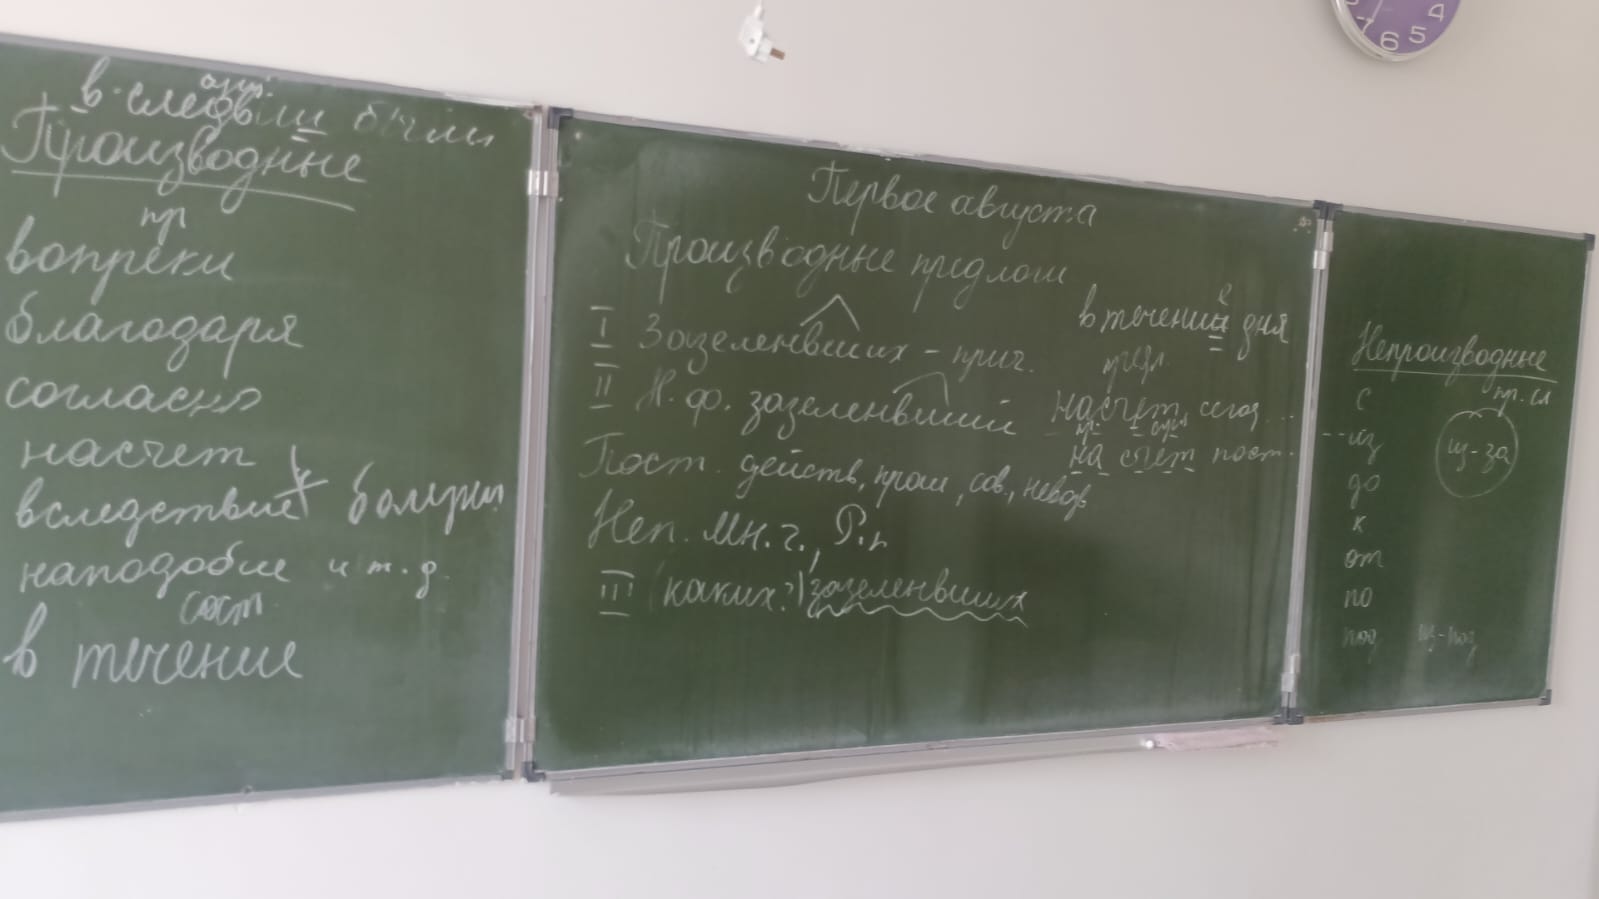 сущ.
в следствии были
Производные
пр
вопреки
благодаря
согласно
насчет
вследствие болезни
наподобие и т.д.
сост.
в течение
Первое августа
Производные предлоги
I Зазеленевших - прич.
II Н.ф. зазеленевший
Пост. действ, прош, сов., невозв
Неп. Мн.ч., Р.п
III (каких?) зазеленевших
е
в течении дня
предл.
насчет сегод...
пр. сущ.
на счет пост.
Непроизводные
пр. сл
с
из
до
к
от
по
под
из-за
из-под
6 5 4 7